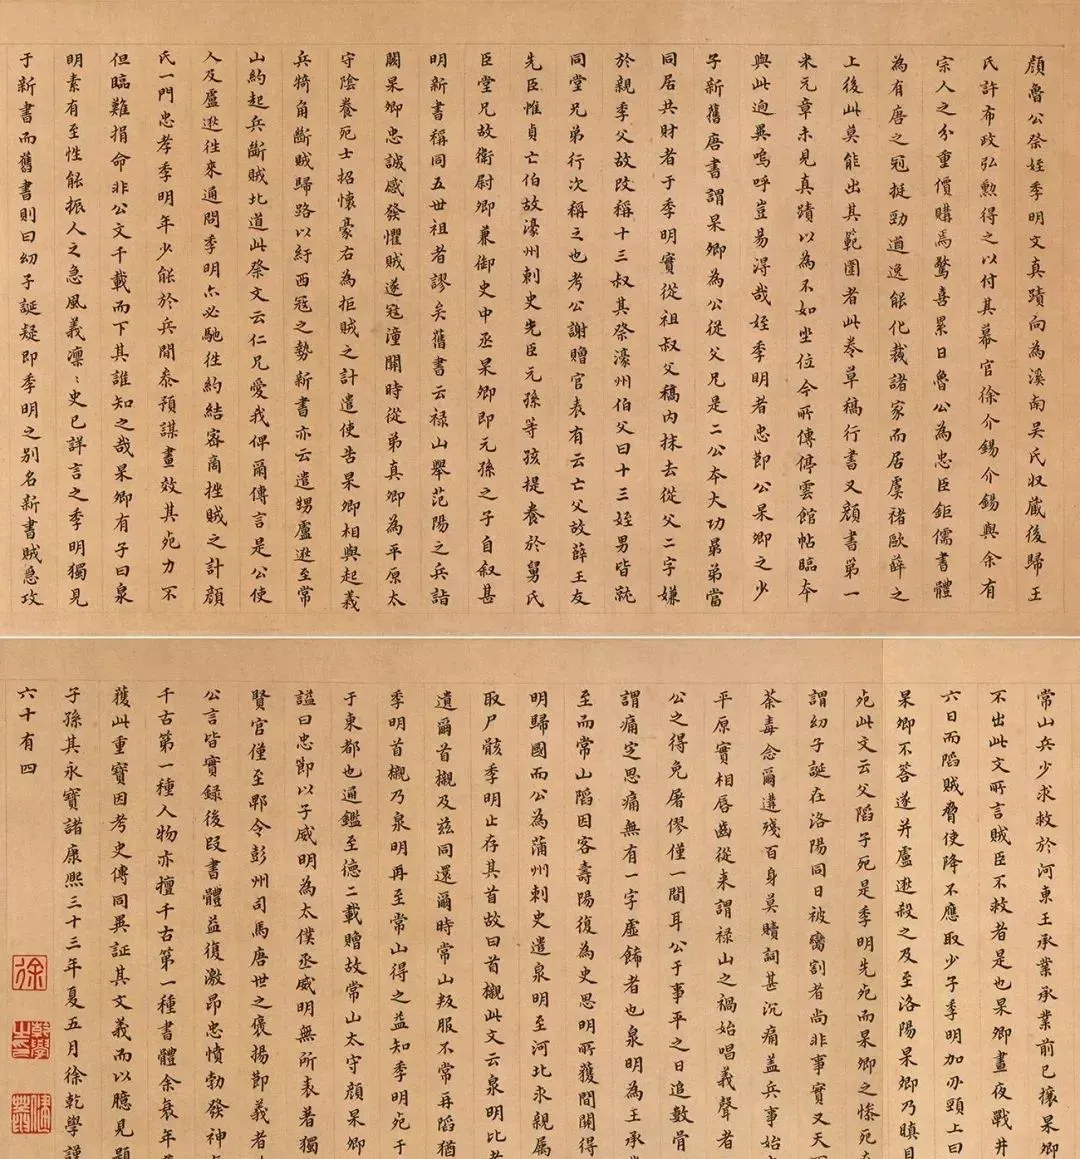 顏魯公祭姪季明文真蹟向為溪南吳氏收藏後歸王
氏許布政弘勲得之以付其幕官徐介錫介錫與余有
宗人之分重價購焉驚喜累日魯公為忠臣鉅儒書體
為有唐之冠挺勁遒逸能化裁諸家而居虞褚歐薛之
上後此莫能出其範圍者此卷草稿行書又顏書第一
米元章未見真蹟以為不如坐位今所傳停雲館帖臨本
與此逈異嗚呼豈易得哉姪季明者忠節公杲卿之少
子新舊唐書謂杲卿為公從父兄是二公本大功弟第當
同居共財者于季明實從祖叔父稿內抹去從父二字嫌
於親季父故改稱十三叔其祭濠州伯父曰十三姪男皆就
同堂兄弟行次稱之也考公謝贈官表有云亡父故薛王友
先臣惟貞亡伯故濠州刺史先臣元孫等孩提養於舅氏
臣堂兄故衛尉卿兼御史中丞杲卿即元孫之子自叙甚
明新書稱同五世祖者謬矣舊書云禄山舉范陽之兵詣
闕杲卿忠誠感發懼賊遂寇潼關時從弟真卿為平原太
守陰養死士招懷豪右為拒賊之計遣使告杲卿相與起義
兵犄角斷賊歸路以紓西寇之勢新書亦云遣甥盧逖至常
山約起兵斷賊北道此祭文云仁兄愛我俾爾傳言是公使
人及盧逖往來通問季明亦必馳往約結密商挫賊之計顏
氏一門忠孝季明年少能於兵間叅預謀畫效其死力不
但臨難捐命非公文千載而下其誰知之哉杲卿有子曰泉
明素有至性能振人之急風義凜〻史已詳言之季明獨見
于新書而舊書則曰幼子誕疑即季明之別名新書賊急攻
常山兵少求救於河東王承業承業前已懷杲卿
不出此文所言賊臣不救者是也杲卿晝夜戰井
六日而陷賊脅使降不應取少子季明加刃頸上曰
杲卿不答遂并盧逖殺之及至洛陽杲卿乃瞋目
死此文云父陷子死是季明先死而杲卿之慘死
謂幼子誕在洛陽同日被臠割者尚非事實又天
荼毒念爾遘殘百身莫贖詞甚沉痛蓋兵事始
平原實相唇齒從来謂禄山之禍始唱義聲者
公之得免屠僇僅一間耳公于事平之日追數骨
謂痛定思痛無有一字虛飾者也泉明為王承
至而常山陷因客壽陽復為史思明所獲間關得
明歸國而公為蒲州刺史遣泉明至河北求親属
取尸骸季明止存其首故曰首櫬此文云泉明比
遺爾首櫬及茲同還爾時常山叛服不常再陷猶
季明首櫬乃泉明再至常山得之益知季明死于
于東都也通鑑至德二載贈故常山太守顏杲卿
謚曰忠節以子威明為太僕丞威明無所表著獨
賢官僅至郫令彭州司馬唐世之褒揚節義者
公言皆實録後段書體益復激昂忠憤勃發神
千古第一種人物亦擅千古第一種書體余衰年
獲此重寶因考史傳同異証其文義而以臆見題
子孫其永寶諸康熙三十三年夏五月徐乾學謹
六十有四
徐
乾學之印
健菴